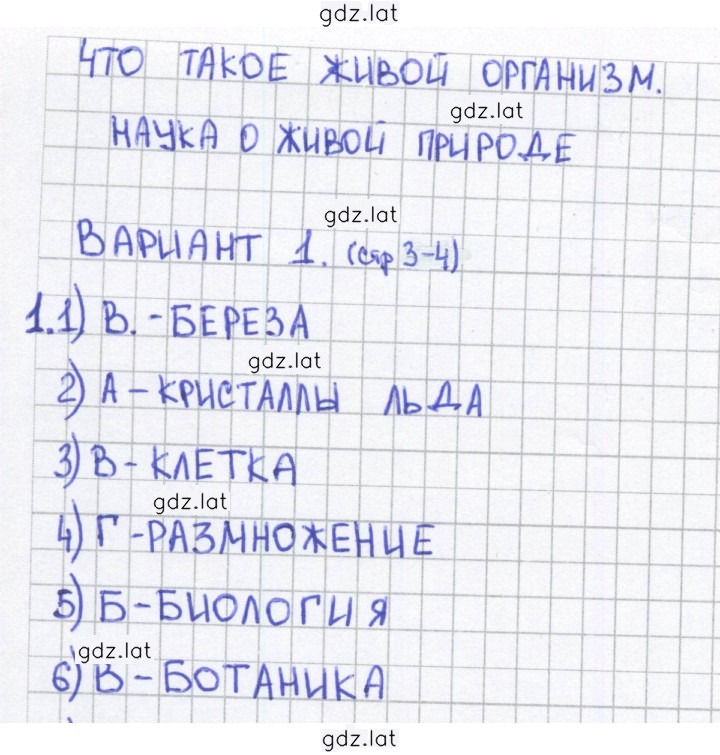 gdz.lat
ЧТО ТАКОЕ ЖИВОЙ ОРГАНИЗМ.
gdz.lat
НАУКА О ЖИВОЙ ПРИРОДЕ
gdz.lat
ВАРИАНТ 1. (стр 3-4)
1.1) В. - БЕРЕЗА
gdz.lat
2) А - КРИСТАЛЛЫ ЛЬДА
3) В - КЛЕТКА
gdz.lat
4) Г - РАЗМНОЖЕНИЕ
5) Б - БИОЛОГИЯ
gdz.lat
6) В - БОТАНИКА
gdz.lat